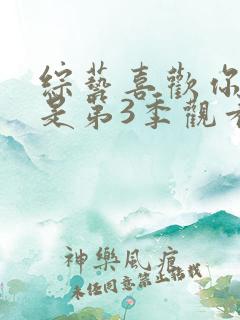 綜藝喜歡你
是弟3季觀看
神樂風痕
未任同意禁止轉載